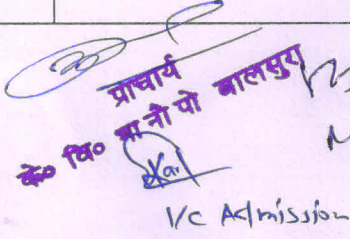 प्राचार्य
के० वि० भा नौ पो बालसुरा
I/C Admission